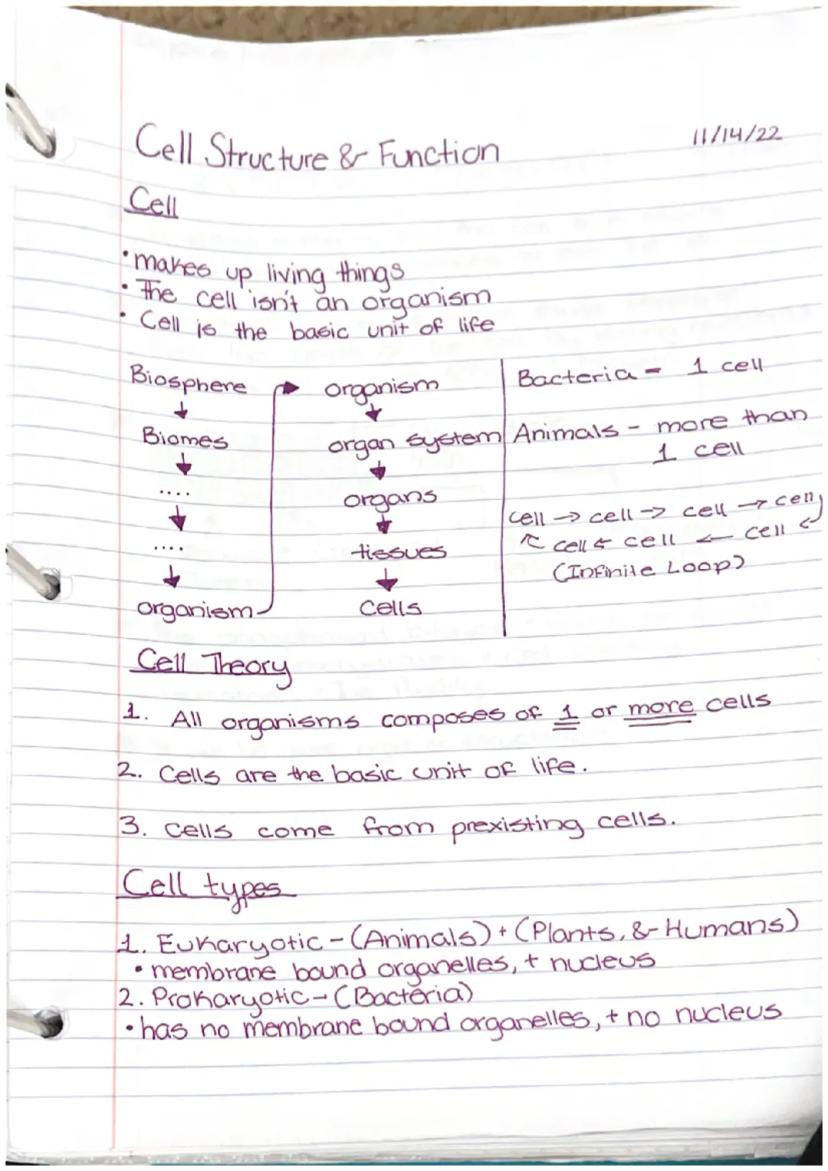 Cell Structure & Function
11/14/22
Cell
• makes up living things
• The cell isn't an organism
• Cell is the basic unit of life
Biosphere
Biomes
....
....
organism
organism
organ system
organs
tissues
Cells
Bacteria - 1 cell
Animals - more than
1 cell
cell → cell → cell → cell
↖ cell ← cell ← cell ↙
(Infinite Loop)
Cell Theory
1. All organisms composes of 1 or more cells
2. Cells are the basic unit of life.
3. Cells come from prexisting cells.
Cell types
1. Eukaryotic - (Animals) + (Plants, & Humans)
• membrane bound organelles, + nucleus
2. Prokaryotic - (Bacteria)
• has no membrane bound organelles, + no nucleus